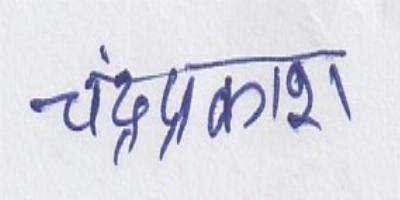 चंद्रप्रकाश